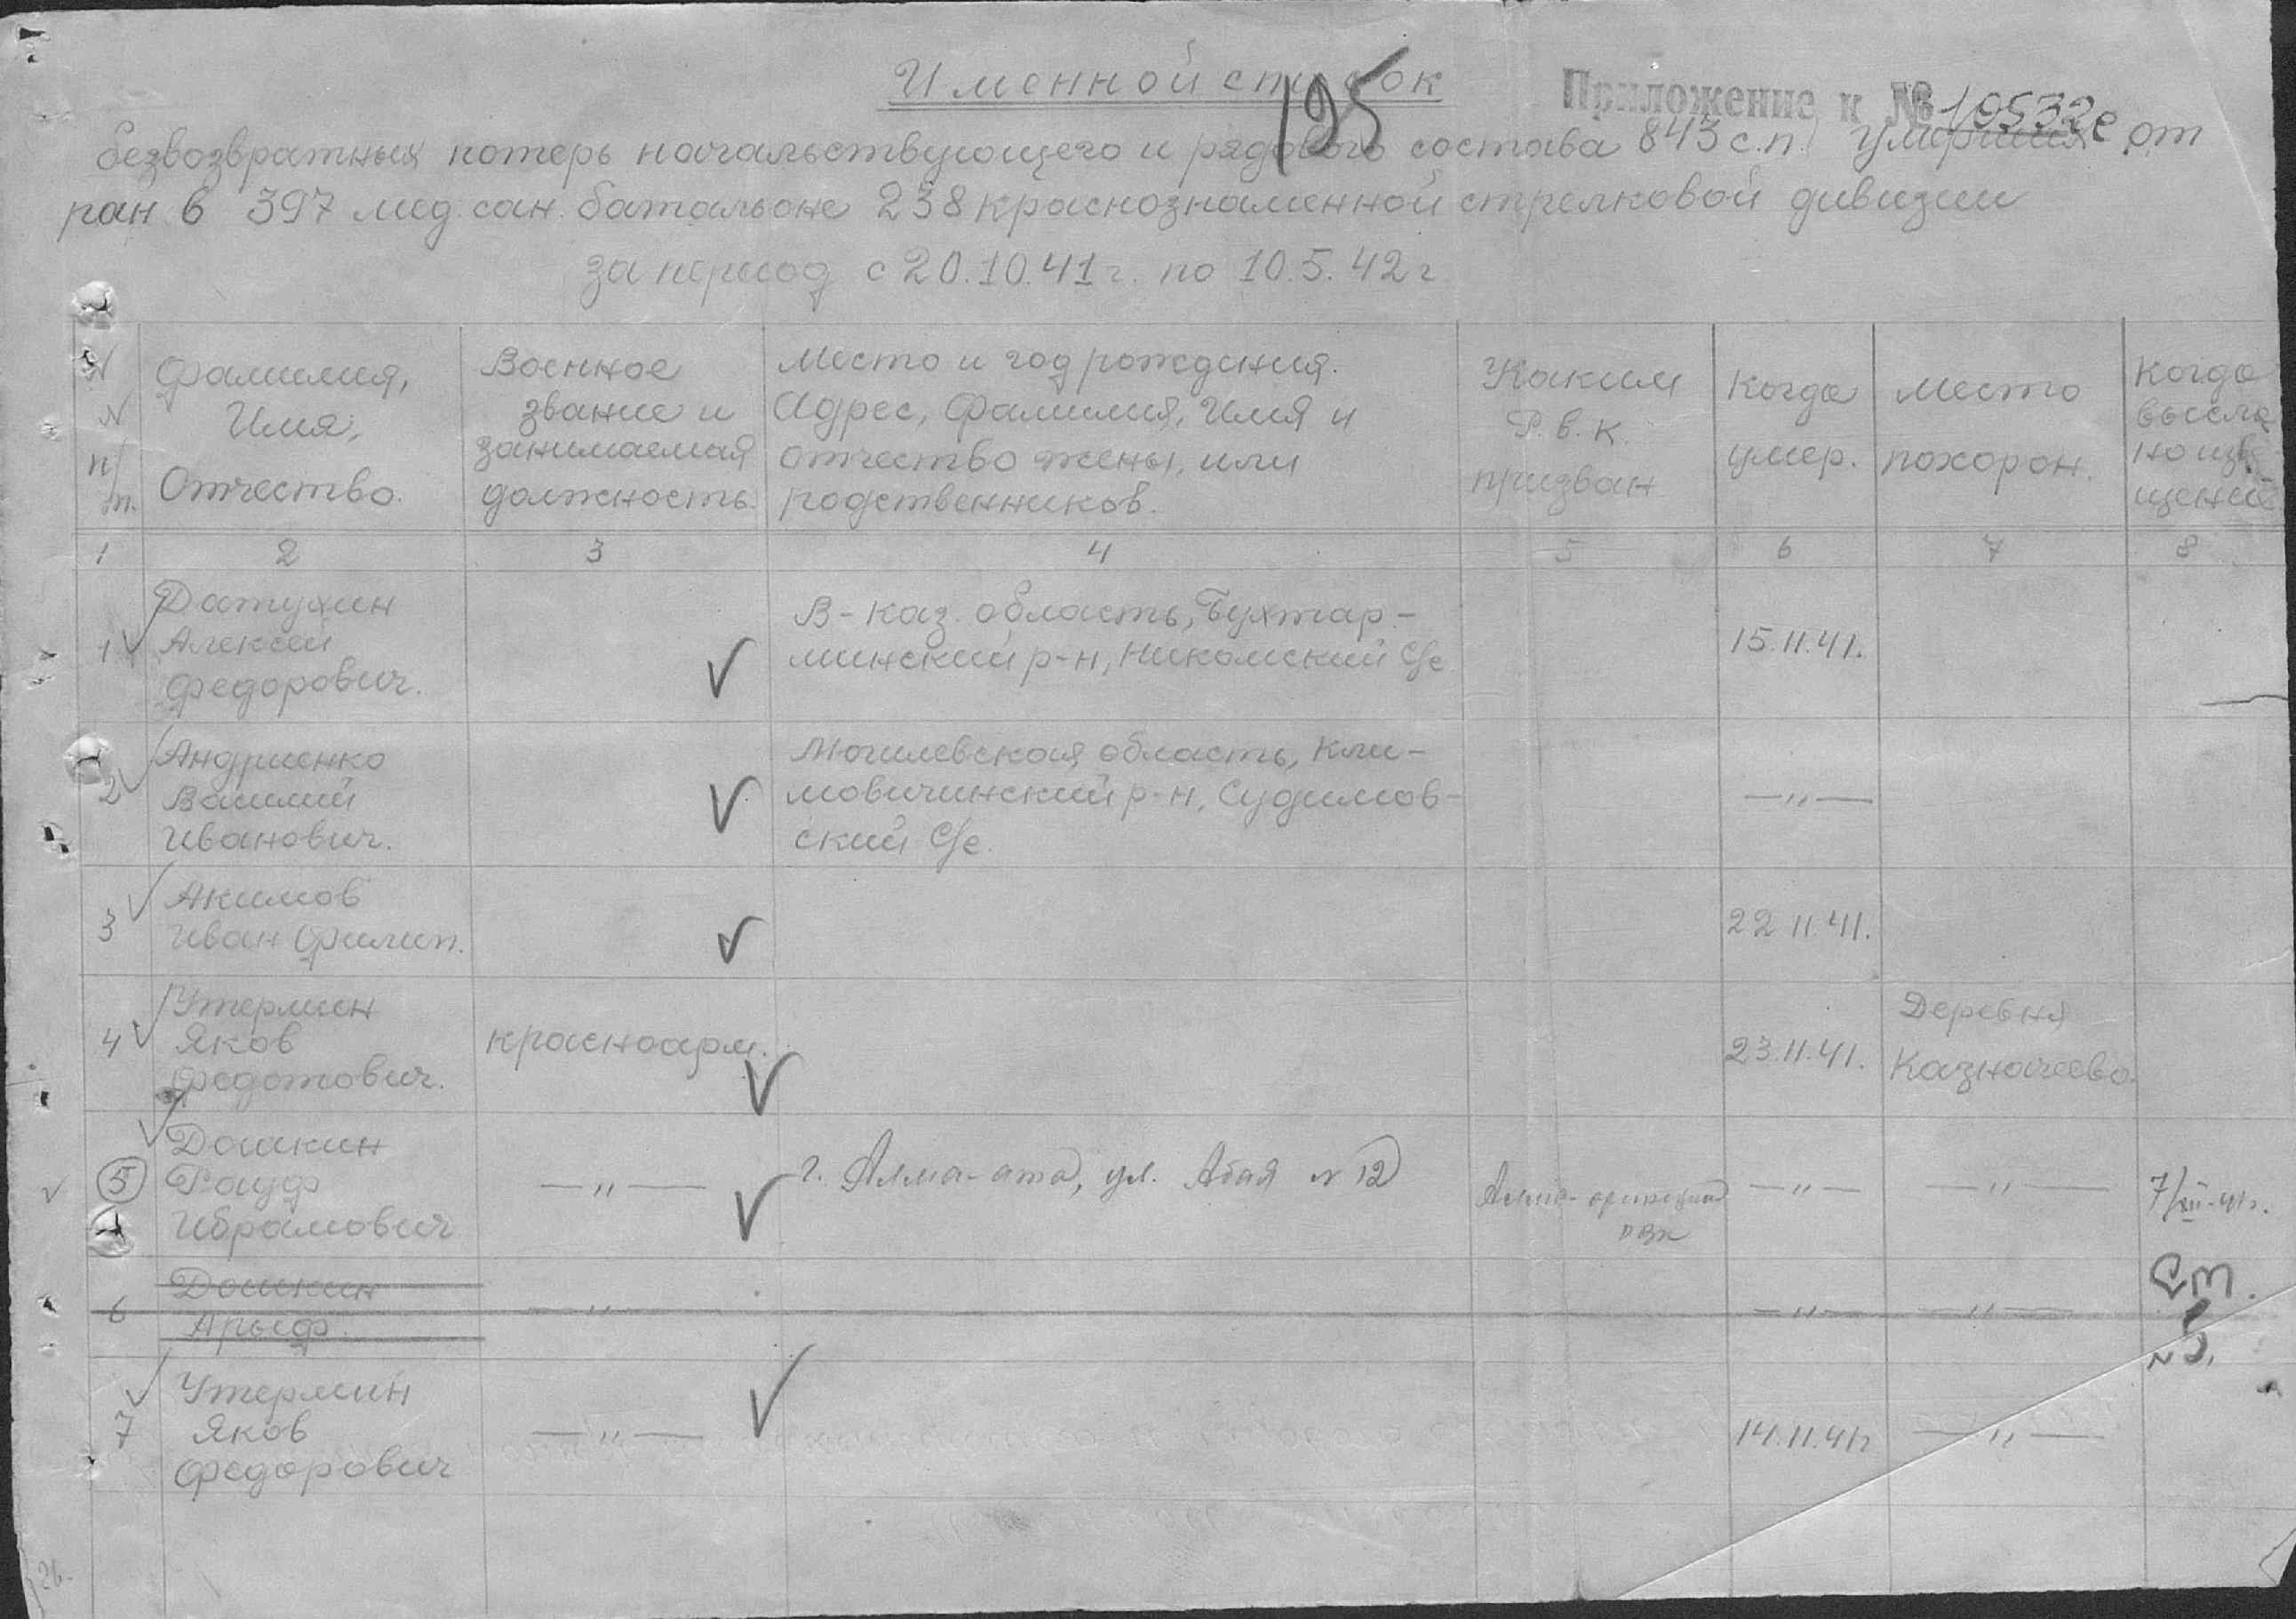 Именной список
195
Приложение к № 10532с
безвозвратных потерь начальствующего и рядового состава 843 с.п. умерших от
ран в 397 мед. сан. батальоне 238 краснознаменной стрелковой дивизии
за период с 20.10.41 г. по 10.5.42 г
N N п/п.
Фамилия,
Имя,
Отчество.
Военное
звание и
занимаемая
должность.
Место и год рождения.
Адрес, фамилия, Имя и
отчество жены, или
родственников.
Каким
Р.В.К.
призван
Когда
умер.
место
похорон.
Когда
высла
но изв
щение
1 2 3 4 5 6 7 8
1
Датухин
Алексей
Федорович.
В-каз. область, Бухтар-
минский р-н, Никомский С/с
15.11.41.
2
Андриенко
Василий
Иванович.
Могилевская область, Кли-
мовичинский р-н, Судимов-
ский С/с.
—"—
3
Акимов
Иван Филип.
22.11.41.
4
Утермин
Яков
Федотович.
красноарм.
23.11.41.
Деревня
Казначеево.
5
Дашкин
Рауф
Ибрамович
—"—
г. Алма-ата, ул. Абая № 12
Алма-
РВК
—"—
—"—
7/XII-41г.
6
Дашкин
Арыф.
—"—
—"—
—"—
См.
№5.
7
Утермин
Яков
Федорович
—"—
14.11.41г
—"—
26.